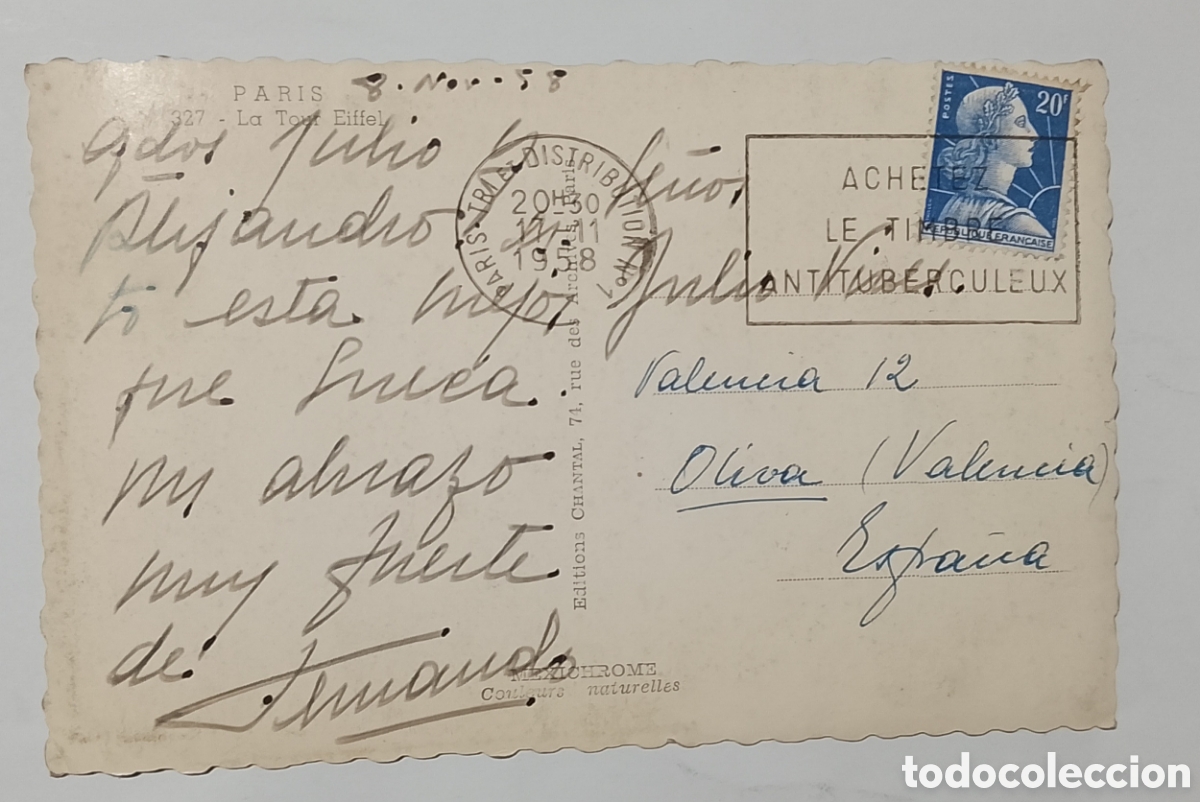 PARIS 8. Nov. 58
327 - La Tour Eiffel
Qdos Julio y
Alejandro
to esta mejor
que Sueca.
un abrazo
muy fuerte
de
Fernando
PARIS · TRI ET DISTRIBUTION No 7
20H30
17-11
1958
Editions CHANTAL, 74, rue des Archives, Paris
MEXICHROME
Couleurs naturelles
POSTES
20F
REPUBLIQUE FRANCAISE
ACHETEZ
LE TIMBRE
ANTITUBERCULEUX
Señor
Julio
Valencia 12
Oliva (Valencia)
España
todocoleccion